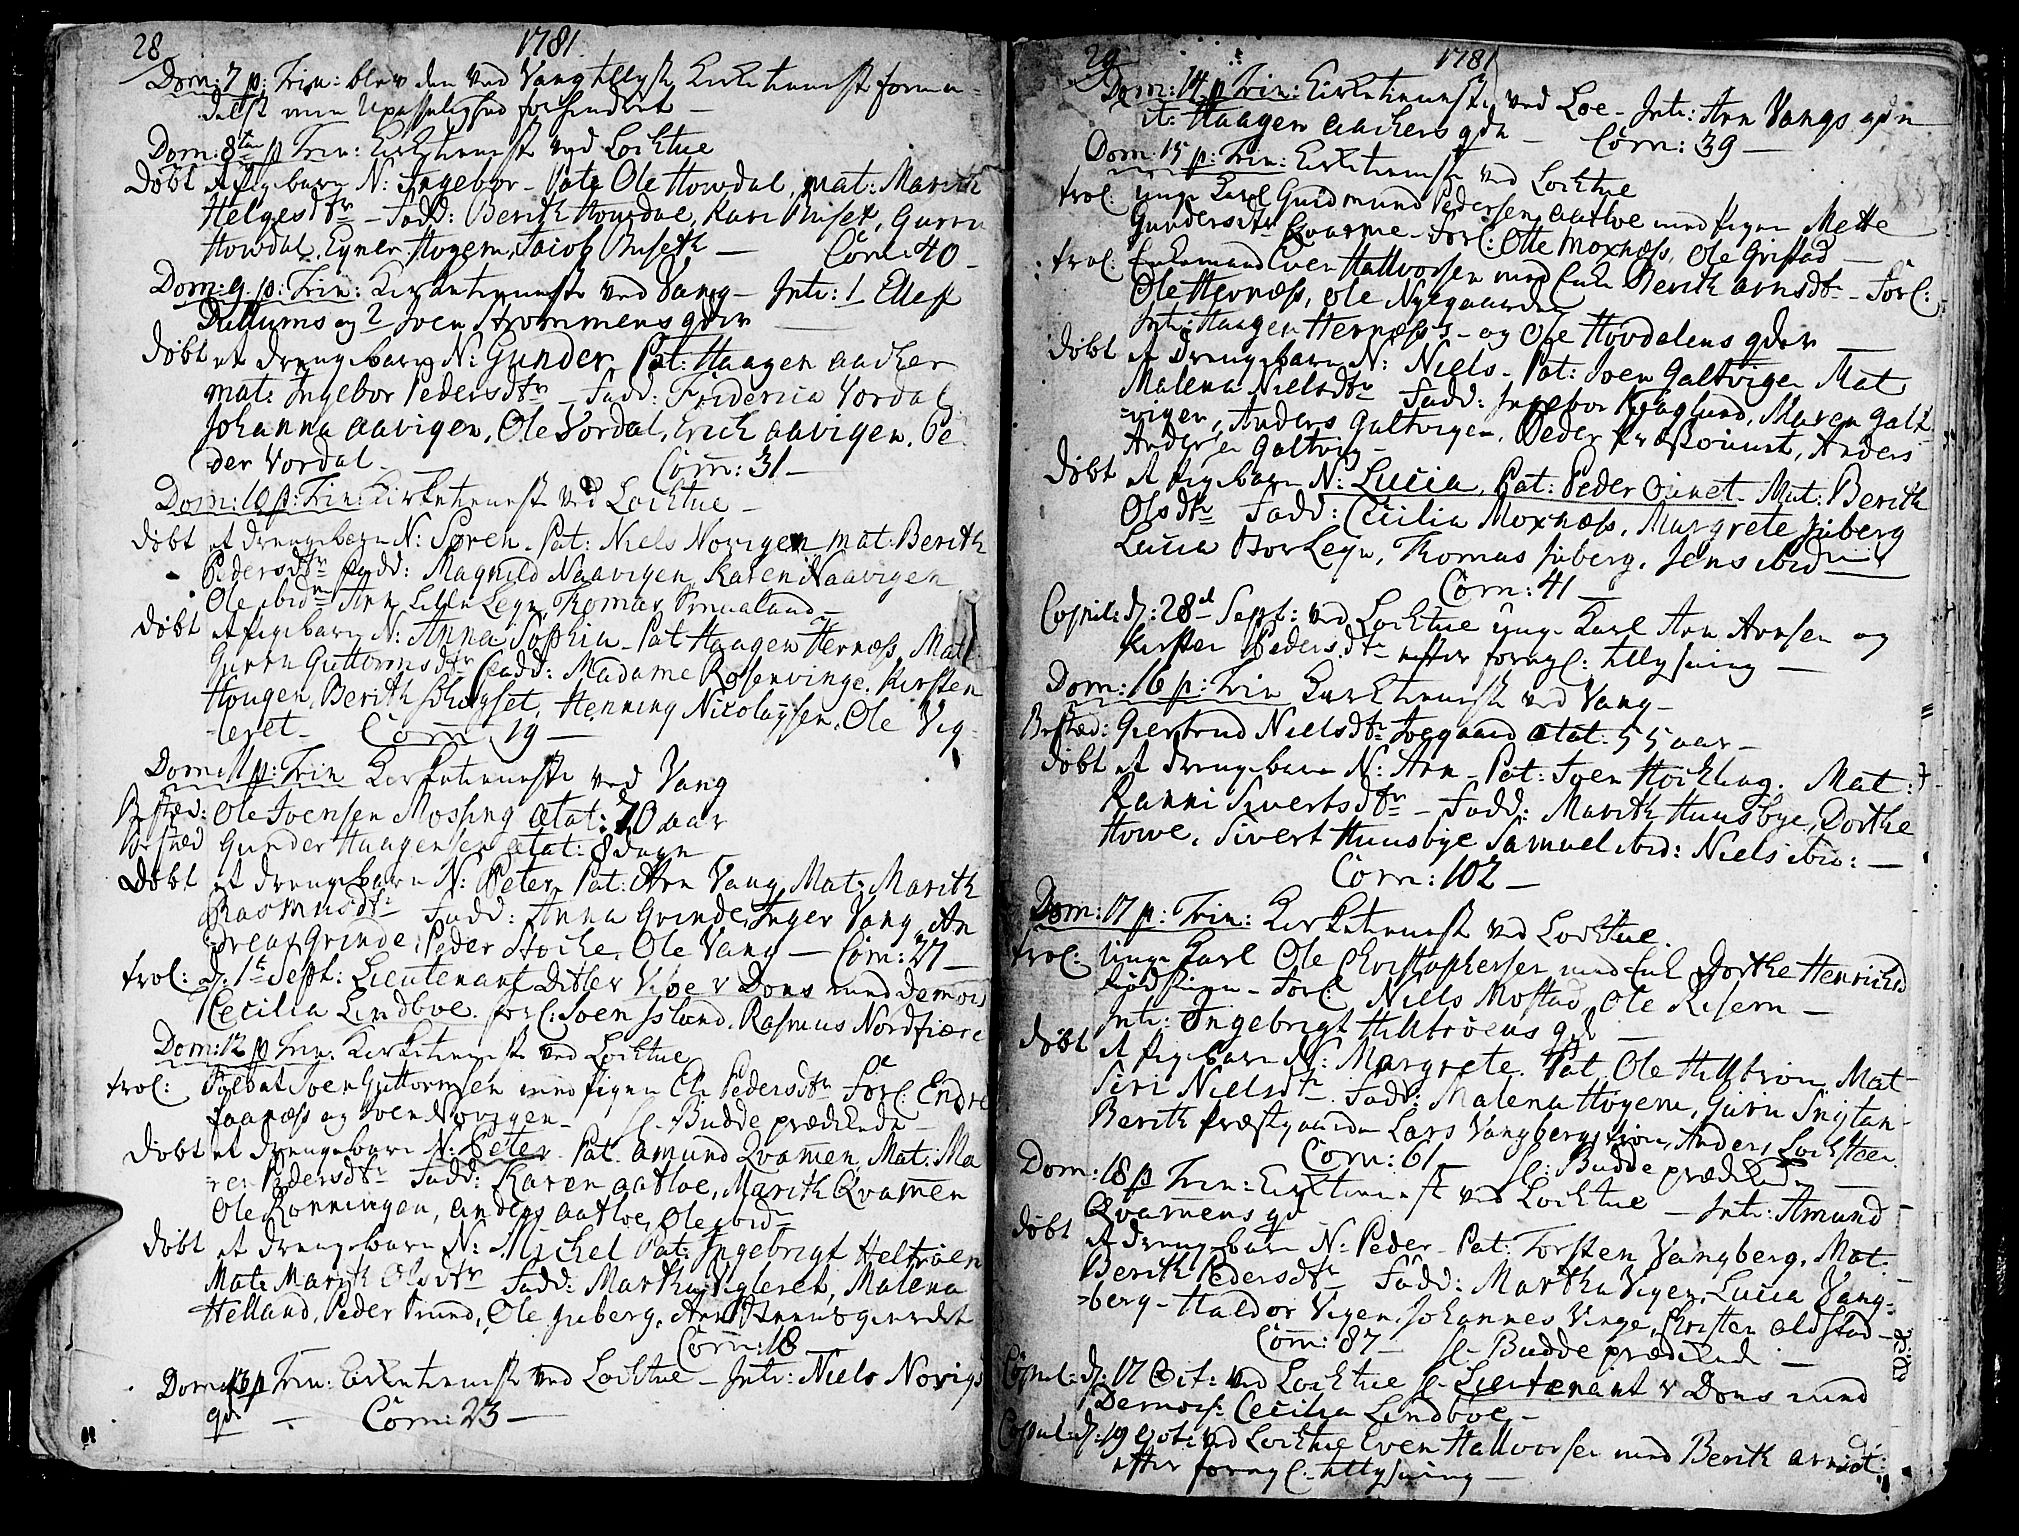 28
1781
Dom: 7 p: Trin: blev den ved Vang tillyste Kirketieneste forme-
delst min Upasselighed forhindret —
Dom: 8de p Trin: Kirketieneste ved Lochtue
Døbt et Pigebarn N: Ingebor - Pat: Ole Howdal, mat: Marith
Helgesdtr - Fadd: Berith Howdal, Kari Buset, Guru
Howdal, Eyner Hogem, Jacob Buseth — Com: 40 -
Dom: 9 p: Trin: Kirketieneste ved Vang - Intr: 1 Ellef
Rullums og 2 Joen Strommens qder
Døbt et drengebarn N: Gunder Pat: Haagen aacher
mat: Ingebor Pedersdtr - Fadd: Fridericia Vordal
Johanna aavigen, Ole Vordal, Erich aavigen, Pe-
der Vordal - Com: 31 -
Dom: 10 p: Trin: Kirketieneste ved Lochtue -
Døbt et drengebarn N: Søren. Pat: Niels Norigen mat: Berith
Pedersdtr Fadd: Magnild Naavigen Karen Naavigen
Ole ibidm Arn Lille Legn Thomas
Døbt et Pigebarn N: Anna Sophia - Pat Haagen Herness, Mat:
Guren Guttormsdtr Fadd: Madame Rosenvinge. Kirsten
Hougen, Berith, Henning Nicolaysen, Ole Vig-
-leret - Com 19 -
Dom: 11 p: Trin Kirketieneste ved Vang
Bested: Ole Joensen Mossing ætat: 70 aar
Bested Gunder Haagensen ætat: 8 dage
Døbt et drengebarn N: Peter. Pat: Arn Vang Mat: Marith
Rasmusdtr Fadd: Anna Grinde, Inger Vang, An
dreas Grinde, Peder Stoche, Ole Vang — Com: 27 -
trol: d: 1te Sept: Lieutenant Ditlev Wibe v Dons med Demois
Cecilia Lindboe. forl: Joen Island, Rasmus Nordfiære
Dom: 12 p Trin: Kirketieneste ved Lochtue
trol: Soldat Joen Guttormsen med Pigen Eli Pedersdtr Forl: Endre
Faaness og Joen Norigen - Hr Budde prædikede -
Døbt et drengebarn N: Peter. Pat. Amund Qvamen, Mat: Ma
ren Pedersdtr Fadd: Karen aatloe, Marith Qvamen
Ole Ronningen, anders aatloe, Ole ibidm
Døbt et drengebarn N: Michel Pat: Ingebrigt Heltroen
Mat: Marith Olsdtr Fadd: Martha Vigleret, Malena
Helland, Peder Trund, Ole Juberg, Arn
Com: 18 -
Dom: 13 p Trin: Kirketieneste ved Lochtue - Intr: Niels Norigs
qde - Com: 23 -
29
1781
Dom: 14 p Trin: Kirketieneste ved Loe - Intr: Arn Vangs qde
it: Haagen aachers qde - Com: 39 -
Dom: 15 p: Trin: Kirketieneste ved Lochtue
trol: unge Karl Guidmund Pedersen aatloe med Pigen Mette
Gundersdtr Qvarme - forl: Otte Moxness, Ole Gristad -
trol: Enkemand Even Hallvorsen med Enke Berith arnsdtr - Forl:
Ole Herness, Ole Nygaarden
Intr: Haagen Herness's - og Ole Howdalens qder -
Døbt et drengebarn N: Niels - Pat: Joen Galtvigen Mat
Malena Nielsdtr Fadd: Ingebor Kraglund, Maren Galt-
=vigen, Anders Galtvigen, Peder, Anders
Andersen Galtvig -
Døbt et Pigebarn N: Lucia, Pat: Peder Ouinet. Mat: Berith
Olsdtr Fadd: Cecilia Moxness, Margrete Juberg
Lucia Bor Legn, Thomas Juberg, Jens ibidm
Com: 41 -
Copul: d: 28de Sept: ved Lochtue unge Karl Arn Arnsen og
Kirsten Pedersdtr efter foregl: tillysning -
Dom: 16 p: Trin Kirketieneste ved Vang -
Bested: Giertrud Nielsdtr Joegaard ætat: 55 aar -
Døbt et drengebarn N: Arn - Pat: Joen Hochling. Mat:
Ranni Sivertsdtr - Fadd: Marith Huusbye, Dorthe
Howe, Sivert Huusbye Samuel ibid: Niels ibid: -
Com: 102 -
Dom: 17 p: Trin: Kirketieneste ved Lochtue.
trol: unge Karl Ole Christophersen med Enk Dorthe Henrichsd
- Forl: Niels Mostad Ole Risem -
Intr: Ingebrigt Heltrøens qd -
Døbt et Pigebarn N: Margrete. Pat: Ole Heltroen Mat-
Siri Nielsdtr. Fadd: Malena Hoyem, Guru Snigtan-
Berith Præstgaarden Lars Vangbergstrøen, Anders Lochsteen.
Com: 61 - Hr: Budde prædikede
Dom: 18 p Trin: Kirketieneste ved Lochtue - Intr: Amund
Qvamens qd
Døbt et drengebarn N: Peder - Pat: Torsten Vangberg, Mat:
Berith Pedersdtr Fadd: Martha Vigen, Lucia Vang-
=berg - Haldor Vigen, Johannes Vinge, Christen Oldstad -
Com: 87 - Hr Budde prædikede -
Copul: d: 12 Oct: ved Lochtue Hr Lieutenant v Dons med
Demois: Cecilia Lindboe -
Copul: d: 19 Oct: ved Lochtue Even Hallvorsen med Berith arnsdt:
efter foregl: tillysning -